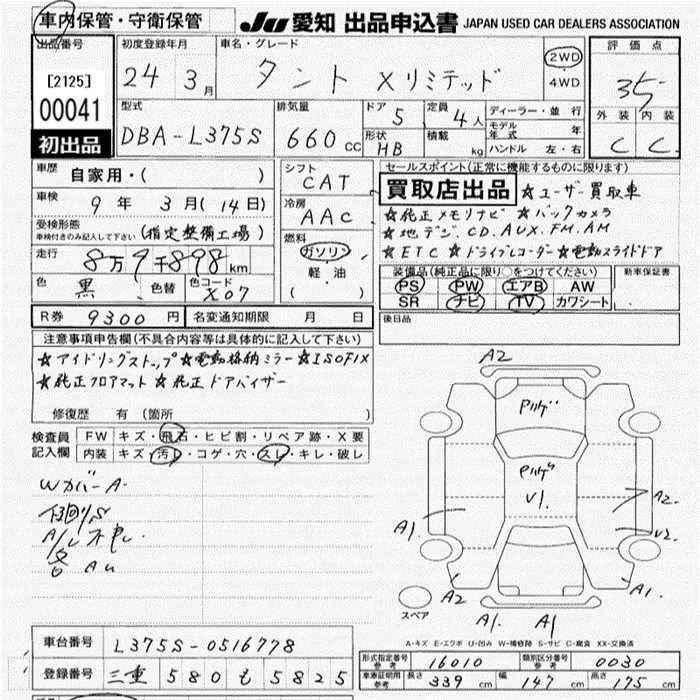 車内保管・守衛保管
JU 愛知 出品申込書 JAPAN USED CAR DEALERS ASSOCIATION
出品番号
[2125]
00041
初出品
初度登録年月
24 3月
車名・グレード
タント Xリミテッド
2WD
4WD
評価点
35
外装 内装
C C
型式
DBA-L375S
排気量
660 CC
ドア 5
形状 HB
定員 4人
積載 kg
ディーラー・並行
モデル年式 年
ハンドル 左・右
車歴
自家用・( )
車検
9年 3月(14日)
受検形態
車検付きのみ記入して下さい
(指定整備工場)
走行
8万9千898km
色 黒 色替 色コード X07
シフト
CAT
冷房
AAC
燃料
ガソリン
軽・油
( )
セールスポイント(正常に機能するものに限ります)
買取店出品 ☆ユーザー買取車
☆純正メモリナビ ☆バックカメラ
☆地デジ.CD.AUX.FM.AM
☆ETC ☆ドライブレコーダー☆電動スライドドア
装備品(純正品に限り○をつけてください) 新車保証書
PS PW エアB AW
SR ナビ TV カワシート
後日品
R券 9300円 名変通知期限 月 日
注意事項申告欄(不具合内容等は具体的に記入して下さい)
☆アイドリングストップ☆電動格納ミラー☆ISOFIX
☆純正フロアマット ☆純正ドアバイザー
修復歴 有(箇所
検査員
記入欄
FW キズ・飛石・ヒビ割・リペア跡・X要
内装 キズ・汚レ・コゲ・穴・スレ・キレ・破レ
WカバーA
A2
V1.
A1
A2
V2.
A2
A1.
A1. A1
スペア
A-キズ E-エクボ U-凹み W-補修跡 S-サビ C-腐食 XX-交換済
車台番号 L375S-0516778
登録番号 三重 580 も 5825
形式指定番号 参考 16010 類別区分番号 参考 0030
車庫証明用 参考 長さ 339cm 幅 147cm 高さ 175cm